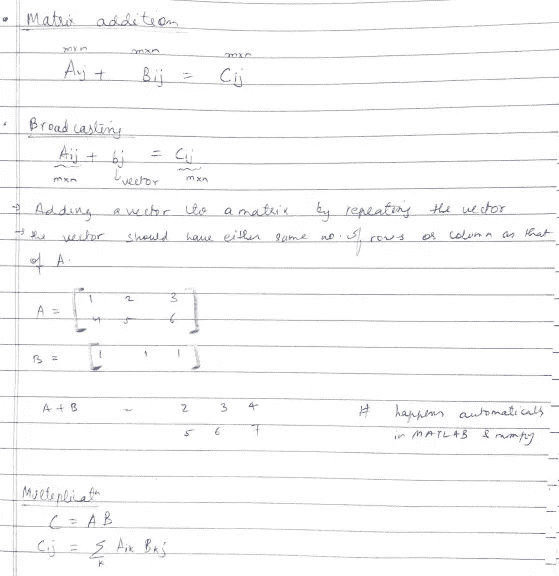 • Matrix addition
mxn mxn mxn
Aij + Bij = Cij
• Broadcasting
Aij + bj = Cij
mxn ↳ vector mxn
→ Adding a vector to a matrix by repeating the vector
→ the vector should have either same no. of rows or column as that
of A.
A = [ 1 2 3
4 5 6 ]
B = [ 1 1 1 ]
A + B = 2 3 4 # happens automatically
5 6 7 in MATLAB & numpy
Multiplicatn
C = AB
Cij = Σ Aik Bkj
k